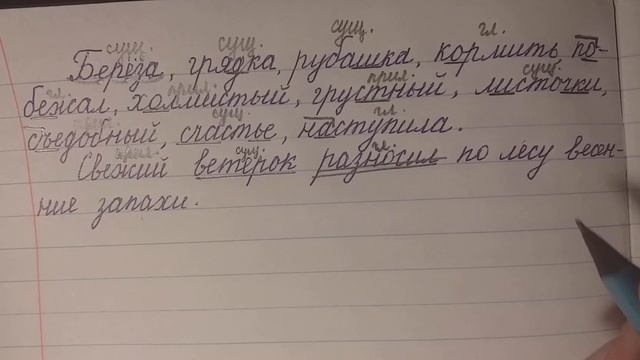 сущ. сущ. сущ. гл.
Берёза, грядка, рубашка, кормить по-
гл. прил. прил. сущ.
бежал, холмистый, грустный, листочки,
прил. сущ. гл.
съедобный, счастье, наступила.
прил. сущ. гл.
Свежий ветерок разносил по лесу весен-
ние запахи.